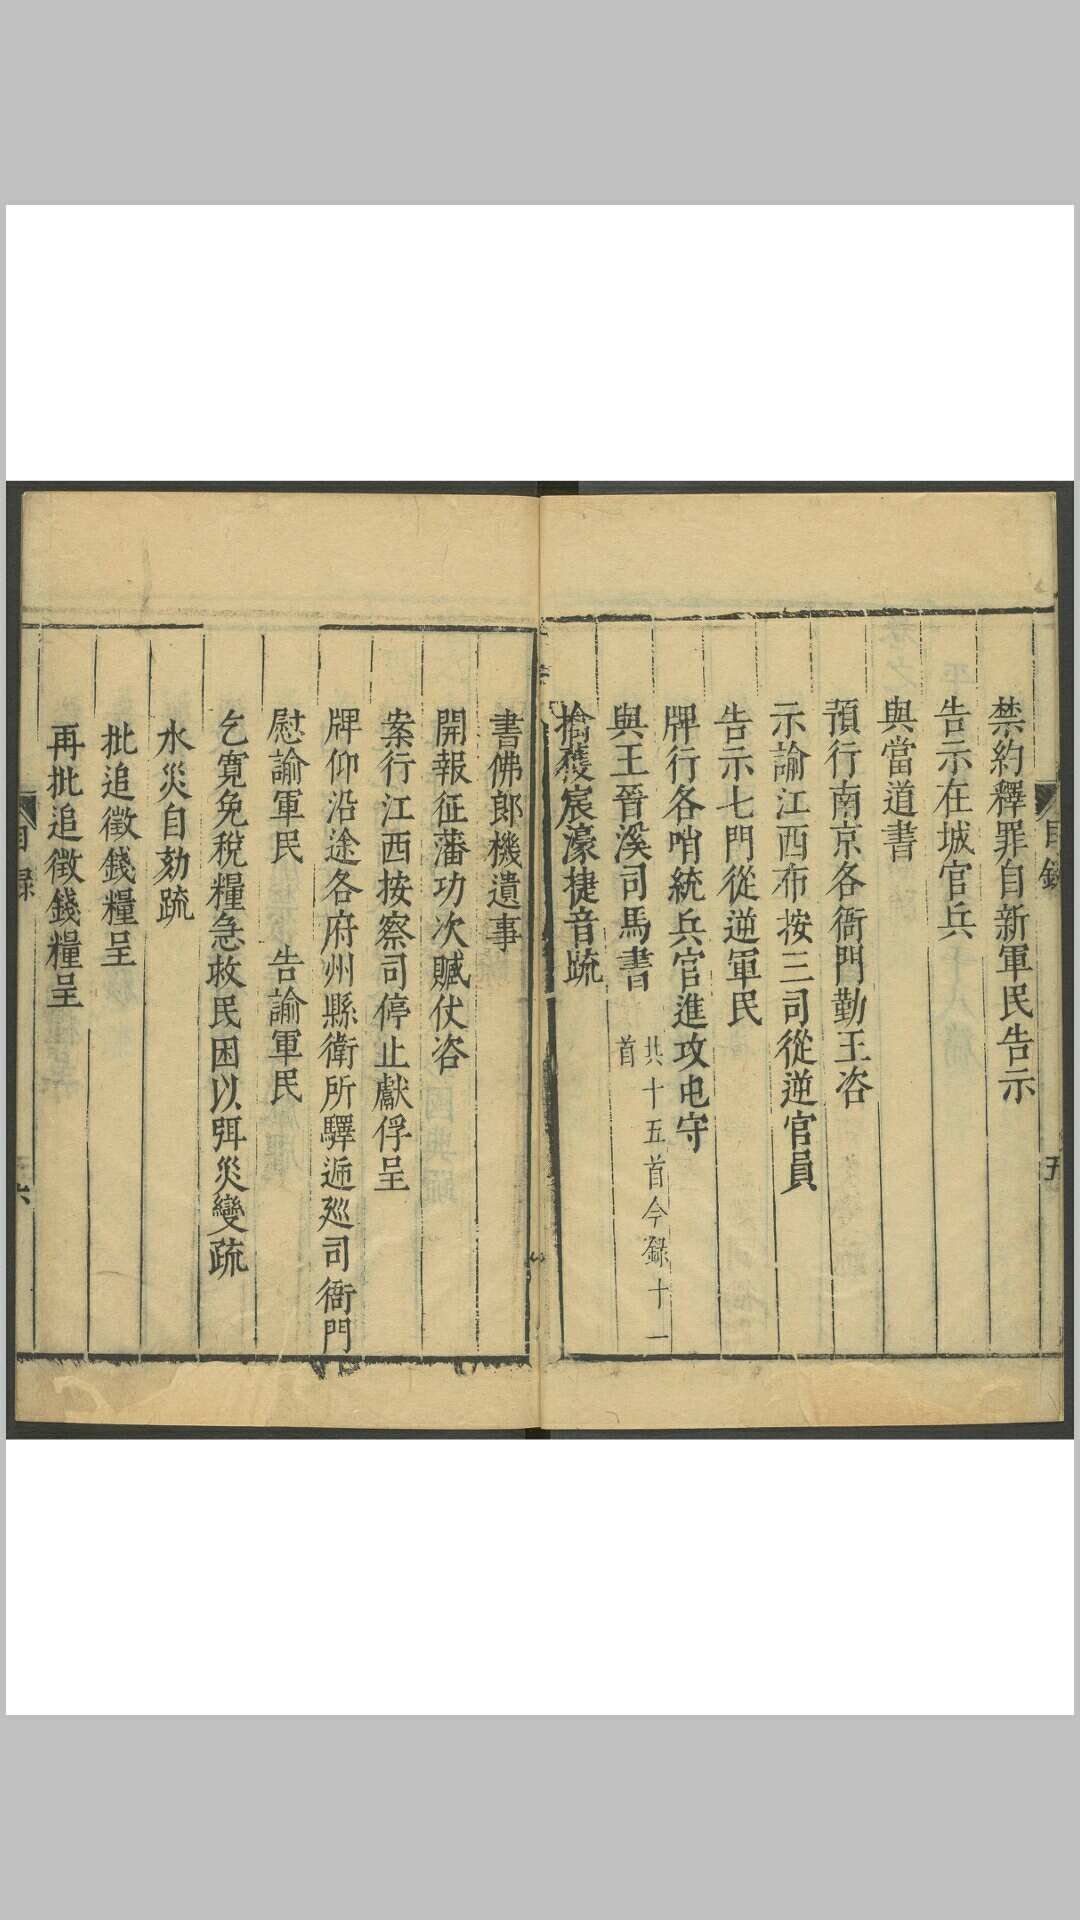 目錄 五
禁約釋罪自新軍民告示
告示在城官兵
與當道書
預行南京各衙門勤王咨
示諭江西布按三司從逆官員
告示七門從逆軍民
牌行各哨統兵官進攻屯守
與王晉溪司馬書 共十五首今錄十一首
擒獲宸濠捷音疏
書佛郎機遺事
開報征藩功次贓仗咨
案行江西按察司停止獻俘呈
牌仰沿途各府州縣衛所驛遞巡司衙門
慰諭軍民 告諭軍民
乞寬免稅糧急救民困以弭災變疏
水災自劾疏
批追徵錢糧呈
再批追徵錢糧呈
目錄 六